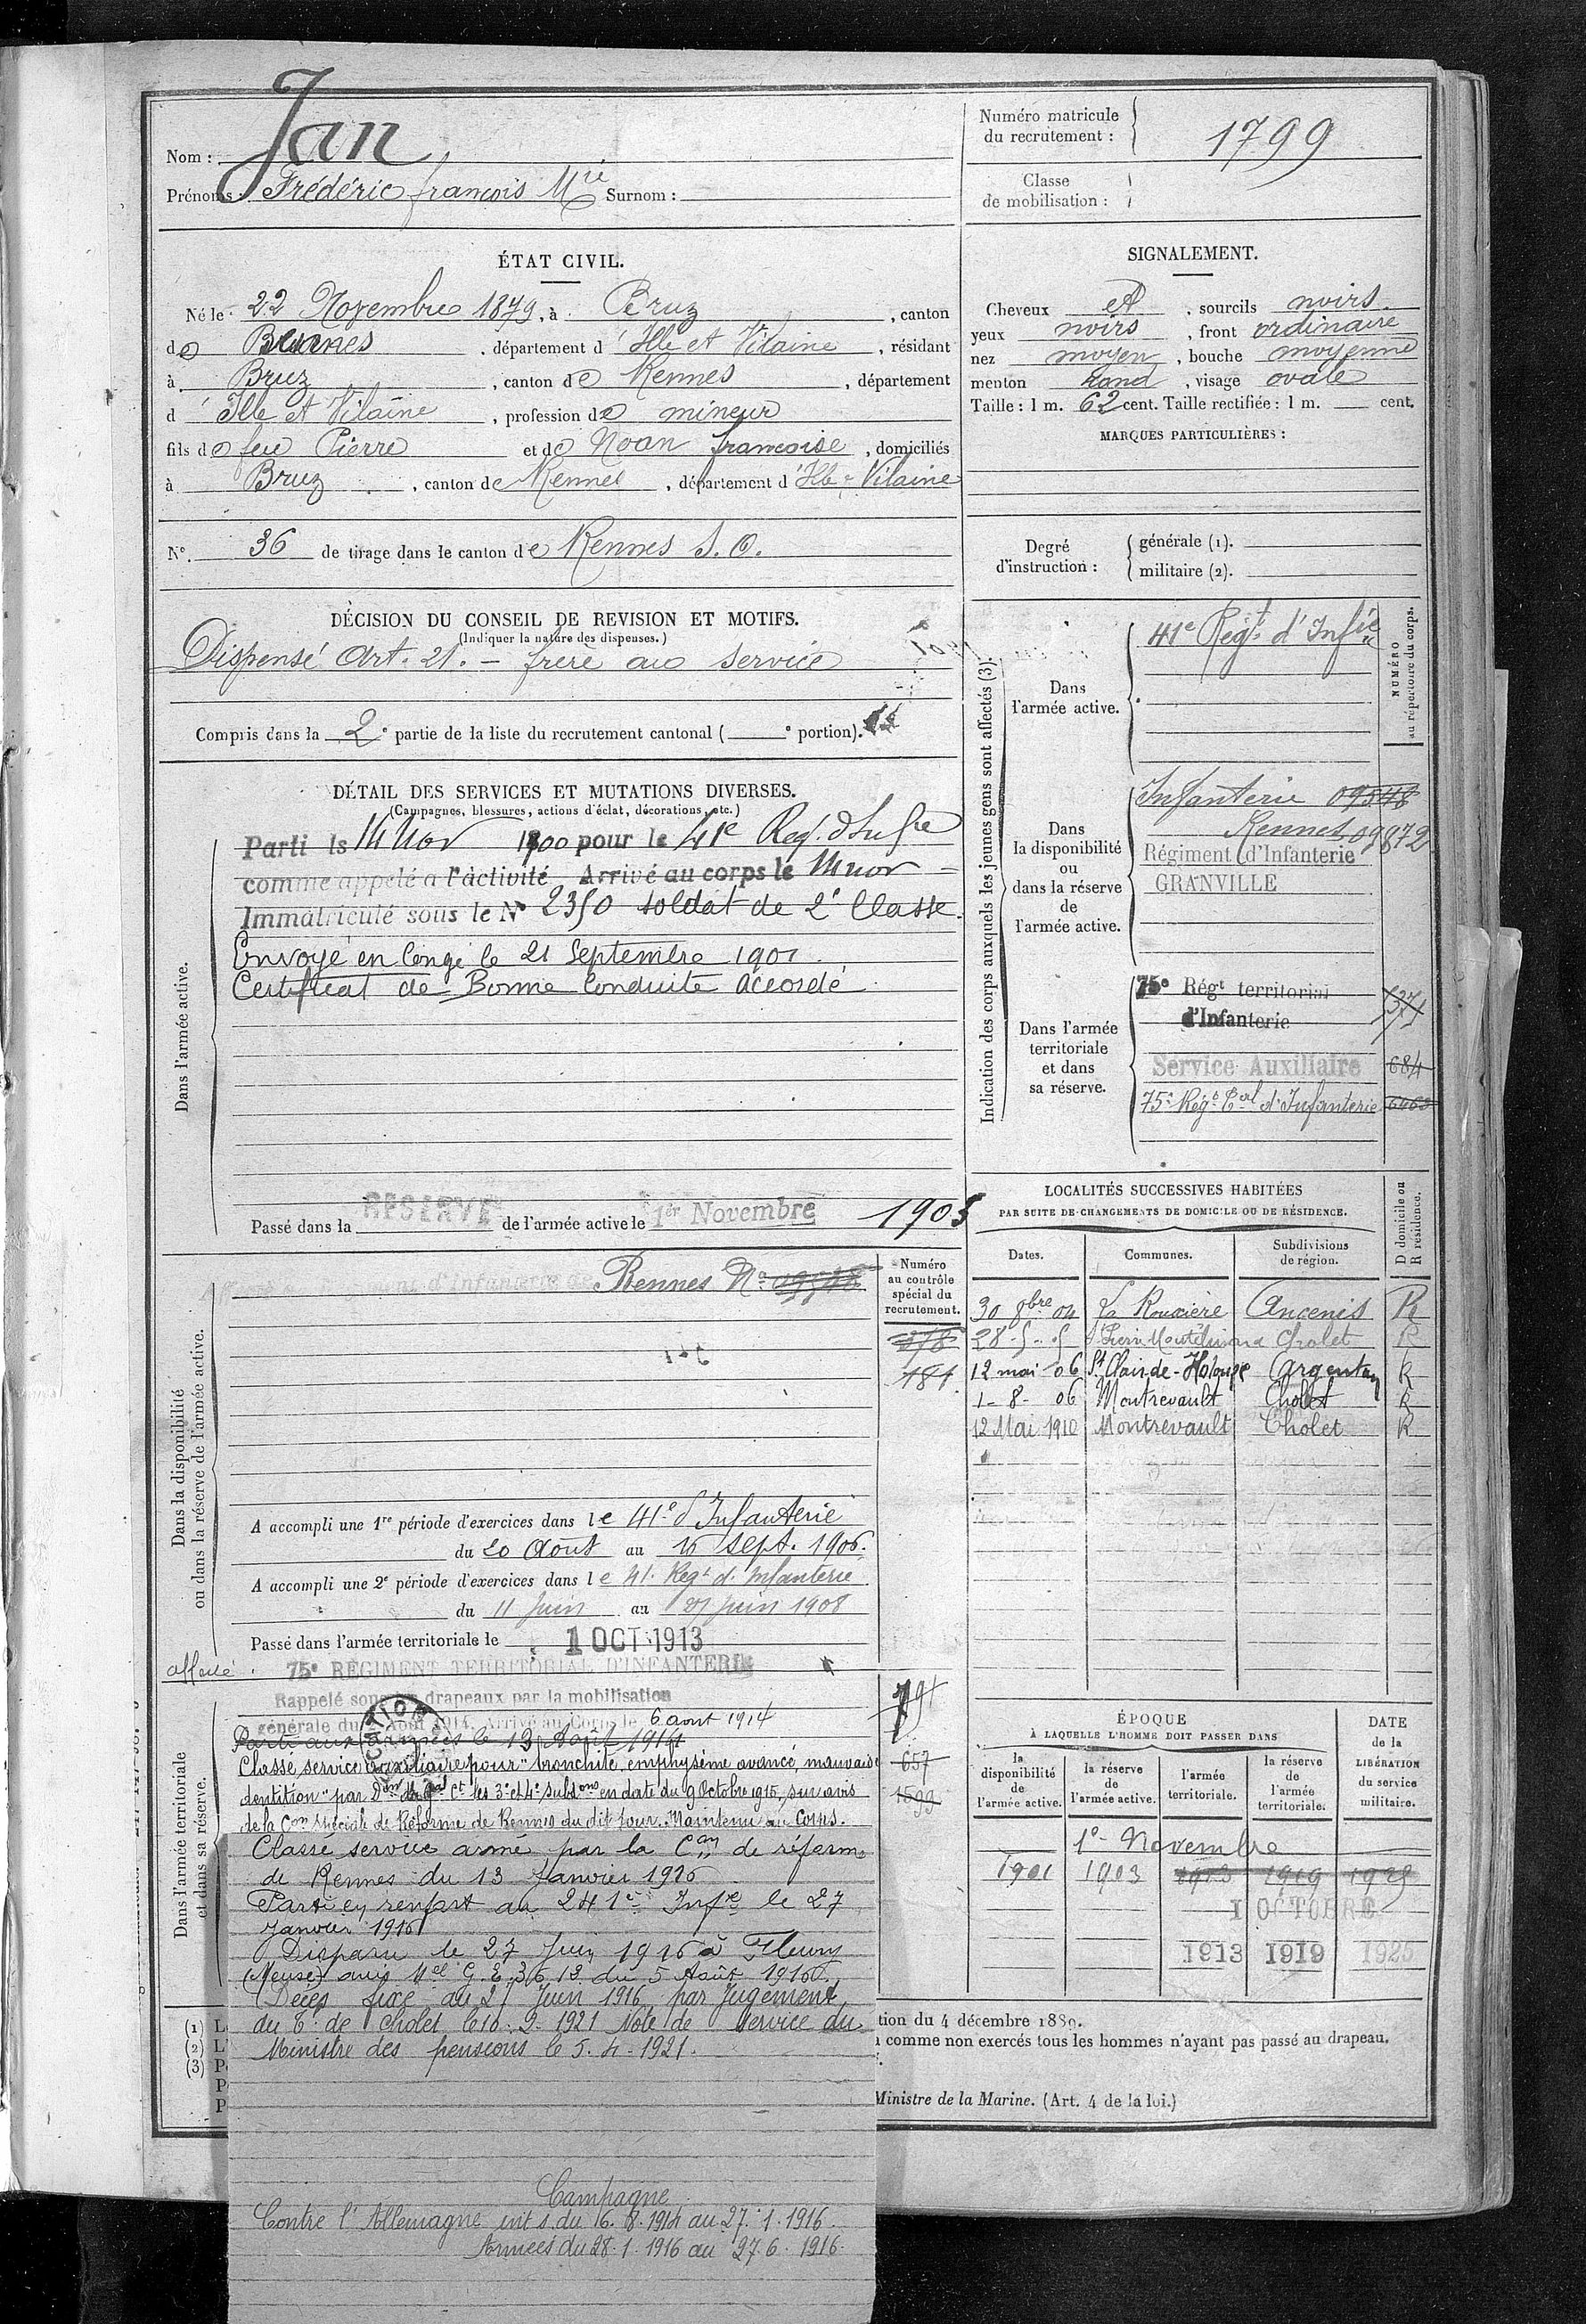 Nom : Jan
Prénoms : Frédéric françois Mie Surnom :
Numéro matricule du recrutement : 1799
Classe de mobilisation :
ÉTAT CIVIL.
Né le 22 Novembre 1879, à Bruz, canton
de Rennes, département d'Ille et Vilaine, résidant
à Bruz, canton de Rennes, département
d'Ille et Vilaine, profession de mineur
fils de feu Pierre et de Noan françoise, domiciliés
à Bruz, canton de Rennes, département d'Ille-Vilaine
N° 36 de tirage dans le canton de Rennes S. O.
SIGNALEMENT.
Cheveux et, sourcils noirs
yeux noirs, front ordinaire
nez moyen, bouche moyenne
menton rond, visage ovale
Taille : 1 m. 62 cent. Taille rectifiée : 1 m. cent.
MARQUES PARTICULIÈRES :
Degré d'instruction : générale (1).
militaire (2).
DÉCISION DU CONSEIL DE REVISION ET MOTIFS.
(Indiquer la nature des dispenses.)
Dispensé Art. 21. - frère au service
Compris dans la 2e partie de la liste du recrutement cantonal ( e portion).
DÉTAIL DES SERVICES ET MUTATIONS DIVERSES.
(Campagnes, blessures, actions d'éclat, décorations, etc.)
Dans l'armée active.
Parti le 14 Nov 1900 pour le 41e Reg. d'Infie
comme appelé à l'activité Arrivé au corps le 14 nov
Immatriculé sous le N° 2350 soldat de 2e Classe.
Envoyé en Congé le 21 Septembre 1901.
Certificat de Bonne Conduite Accordé
Passé dans la RÉSERVE de l'armée active le 1er Novembre 1903
Indication des corps auxquels les jeunes gens sont affectés (3).
NUMÉRO au répertoire du corps.
Dans l'armée active.
41e Régt d'Infie
Dans la disponibilité ou dans la réserve de l'armée active.
Infanterie 09548
Rennes 09872
Régiment d'Infanterie
GRANVILLE
Dans l'armée territoriale et dans sa réserve.
75e Régt territorial
d'Infanterie
Service Auxiliaire 684
75e Régt Terl d'Infanterie
LOCALITÉS SUCCESSIVES HABITÉES
PAR SUITE DE CHANGEMENTS DE DOMICILE OU DE RÉSIDENCE.
Dates. Communes. Subdivisions de région. D domicile ou R résidence.
30 8bre 04 La Rouxière Ancenis R
28-5-5 St Pierre Montlimart Cholet R
12 mai 06 St Clair de Halouze Argentan R
1-8-06 Montrevault Cholet R
12 Mai 1910 Montrevault Cholet R
Dans la disponibilité ou dans la réserve de l'armée active.
Numéro au contrôle spécial du recrutement.
Régiment d'Infanterie de Rennes N° 09548
378
181
A accompli une 1re période d'exercices dans le 41e d'Infanterie
du 20 Août au 16 sept. 1906.
A accompli une 2e période d'exercices dans le 41. Regt d'Infanterie
du 11 Juin au 27 Juin 1908
Passé dans l'armée territoriale le 1 OCT 1913
affecté 75e RÉGIMENT TERRITORIAL D'INFANTERIE
Dans l'armée territoriale et dans sa réserve.
Rappelé sous les drapeaux par la mobilisation
générale du 2 Août 1914. Arrivé au Corps le 6 aout 1914
Parti aux armées le 13 Août 1914
Classé service auxiliaire pour "bronchite, emphysème avancé, mauvaise
dentition" par Don du Gal Ct les 3e et 4e Subdons en date du 9 Octobre 1915, sur avis
de la Con spéciale de Réforme de Rennes du dit jour. Maintenu au Corps.
657
1599
Classé service armé par la Con de réforme
de Rennes du 13 Janvier 1916
Parti en renfort au 241e Infie le 27
Janvier 1916
Disparu le 27 Juin 1916 à Fleury
(Meuse) avis Mel G. E. 3612 du 5 Août 1916.
Décès fixé au 27 Juin 1916 par Jugement
du T. de Cholet le 10.2.1921 Note de service du
Ministre des pensions le 5.4.1921.
Campagne
Contre l'Allemagne int s. du 6.8.1914 au 27.1.1916.
Armées du 28.1.1916 au 27.6.1916.
ÉPOQUE
À LAQUELLE L'HOMME DOIT PASSER DANS
DATE de la LIBÉRATION du service militaire.
la disponibilité de l'armée active. la réserve de l'armée active. l'armée territoriale. la réserve de l'armée territoriale.
1er Novembre
1901 1903 1913 1919
1 OCTOBRE
1913 1919 1925
(1) L
(2) L'
(3) P
P
P
tion du 4 décembre 1889.
comme non exercés tous les hommes n'ayant pas passé au drapeau.
Ministre de la Marine. (Art. 4 de la loi.)